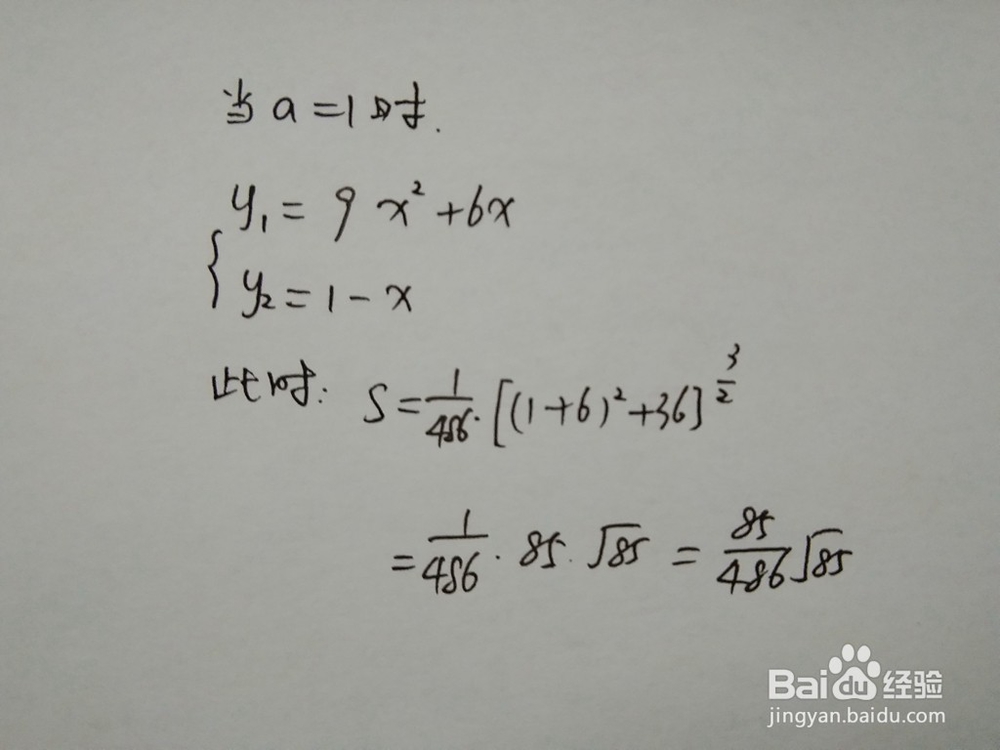 当 a = 1 时.
y₁ = 9x² + 6x
{ y₂ = 1 - x
此时: S = 1/486 · [(1+6)² + 36]^(3/2)
= 1/486 · 85 · √85 = 85/486 √85
Baidu 经验
jingyan.baidu.com